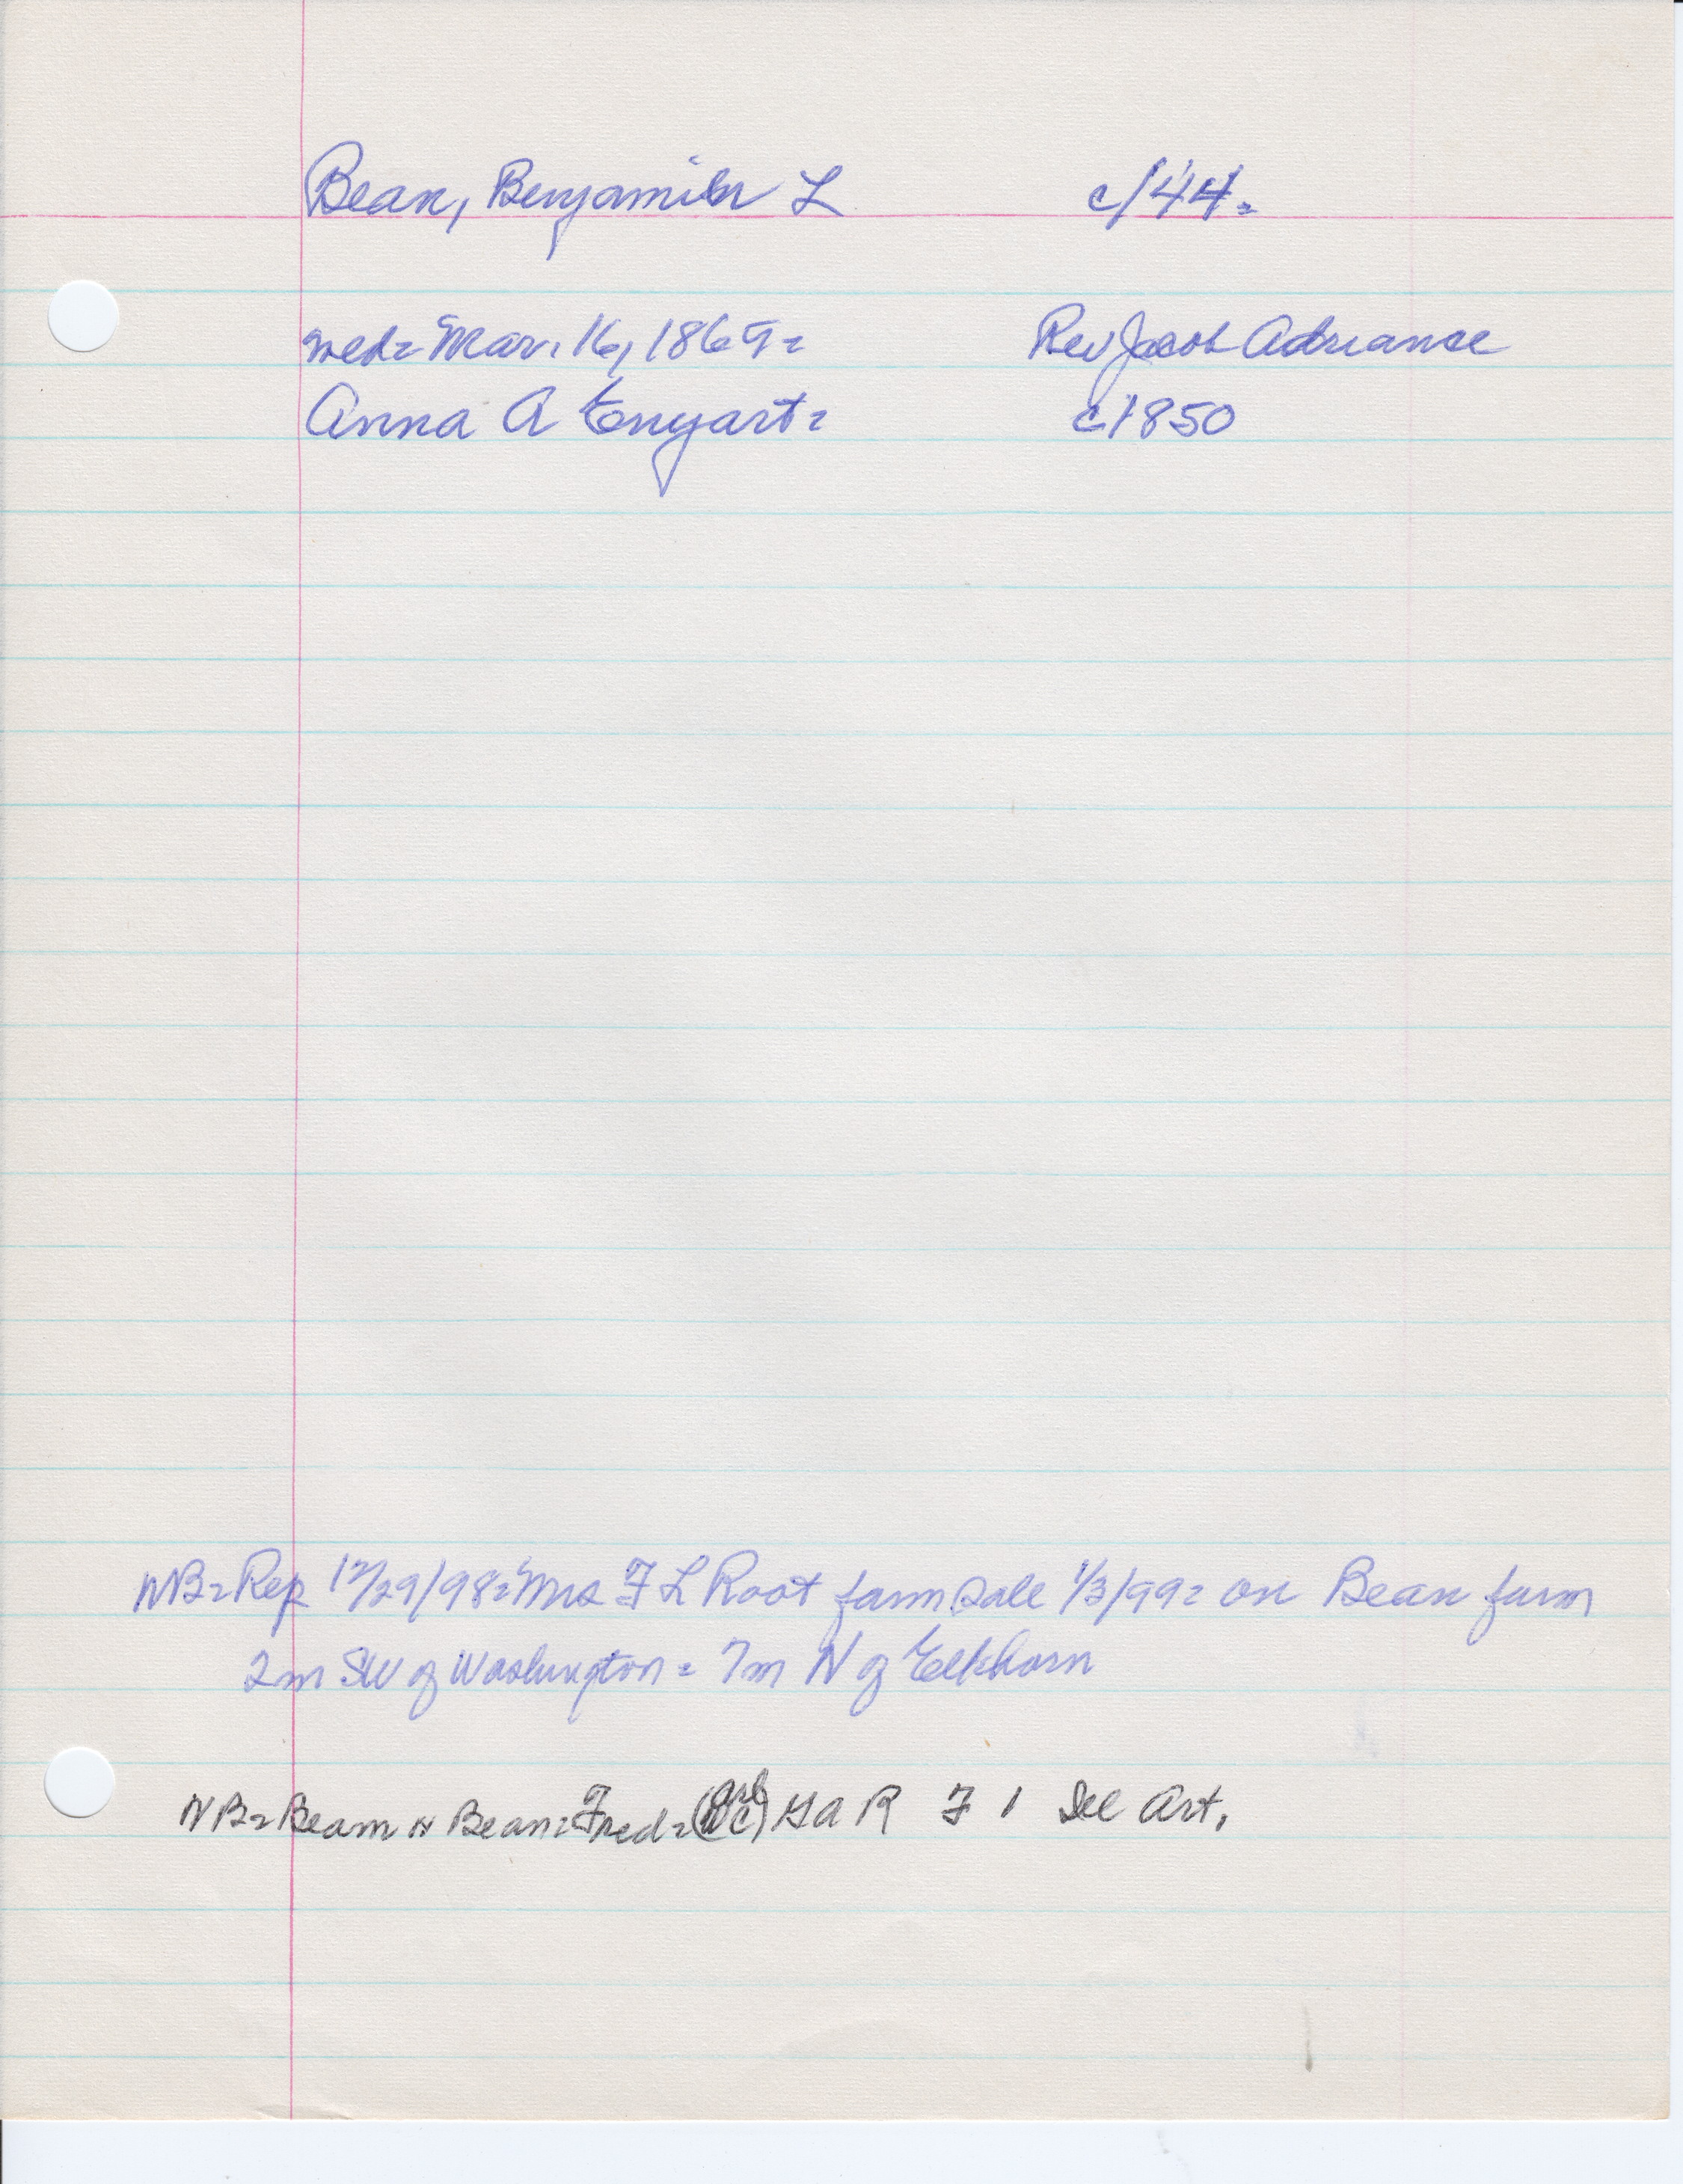 Bean, Benjamin L c/44=
wed= Mar. 16, 1869= Rev Jacob Adriance
Anna A Enyart= c1850
NB=Rep 12/29/98=Mrs F L Root farm sale 1/3/99= on Bean farm
2m SW of Washington= 7m N of Elkhorn
NB=Beam N Bean=Fred= G A R F 1 Del Art.